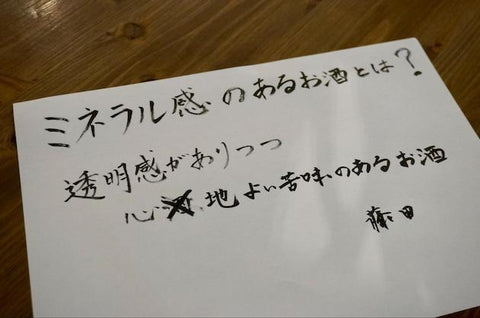 ミネラル感のあるお酒とは?
透明感がありつつ
心地よい苦味のあるお酒
藤田